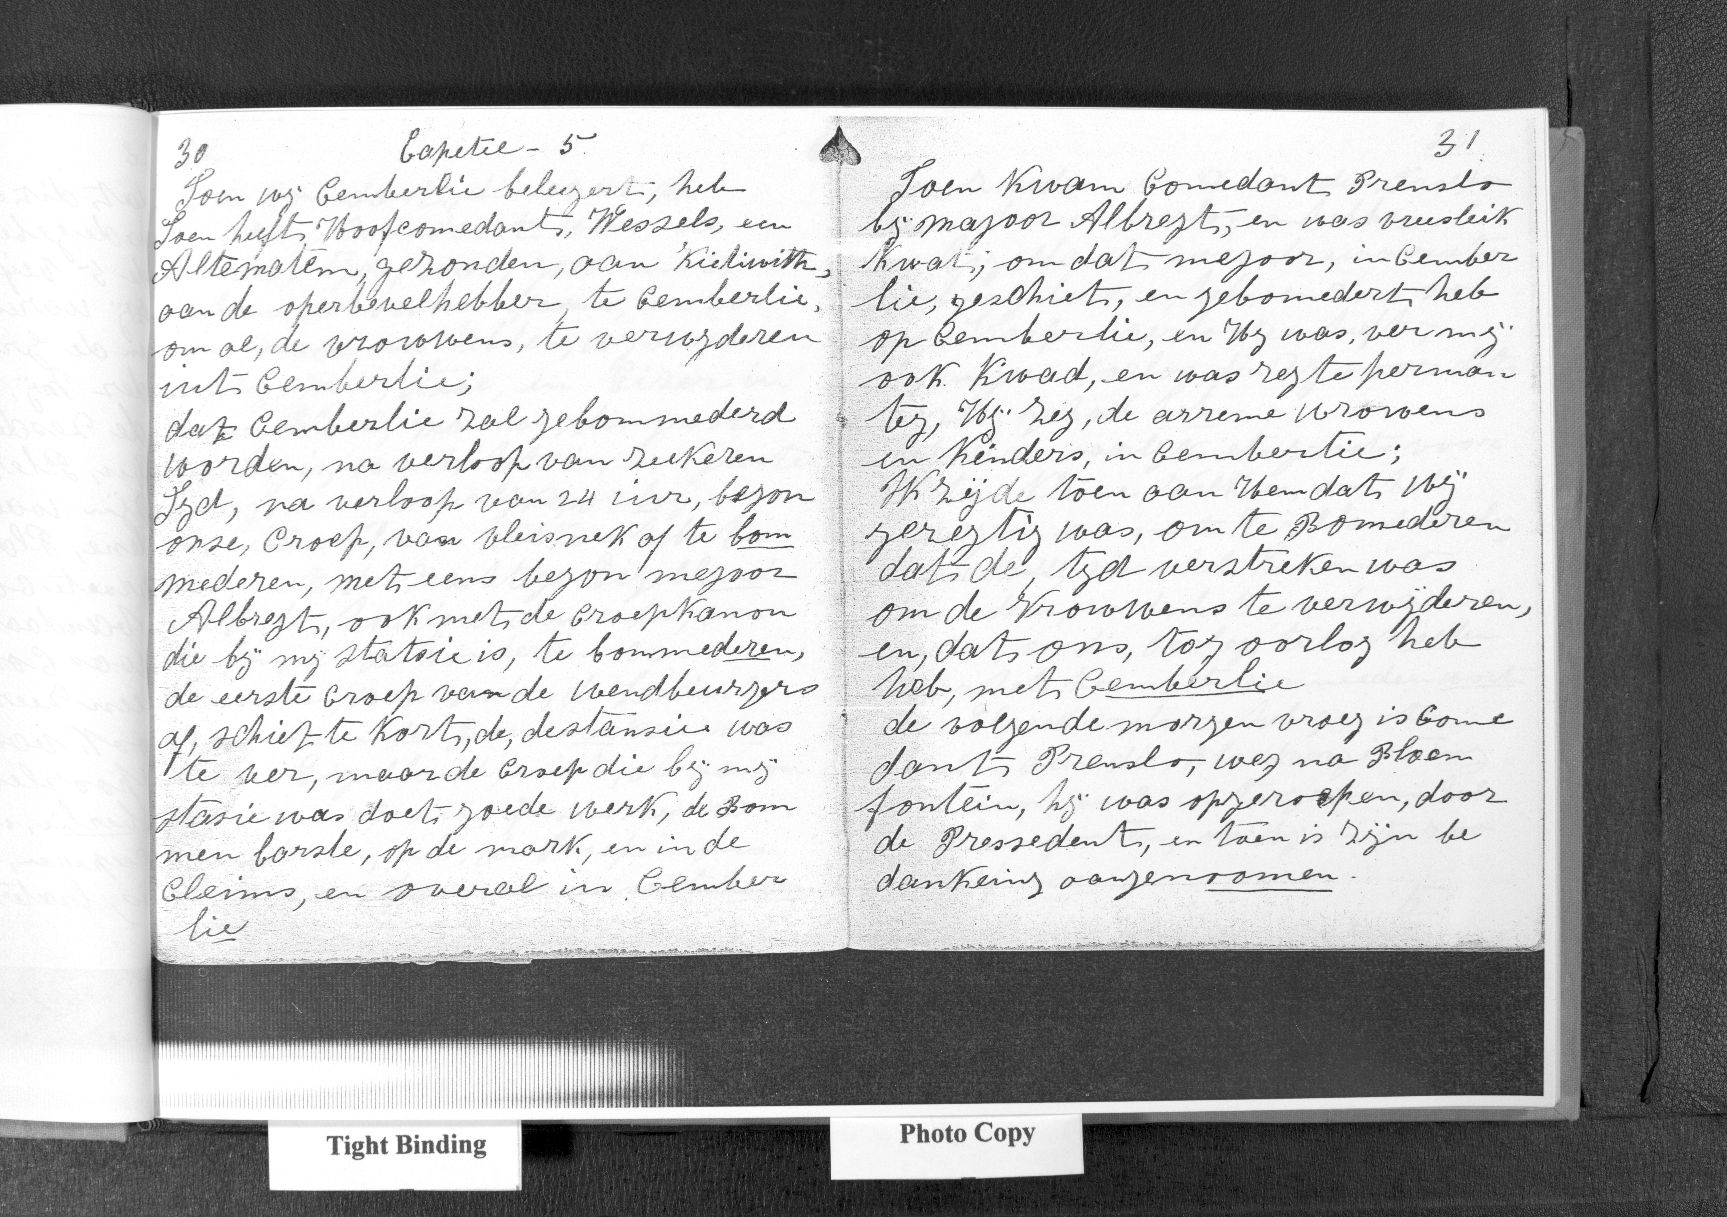 30 Capetie - 5
Toen wij Cemberlie belegert, heb
Toen heeft, Hoofcomedant, Wessels, een
Altematem, gezonden, aan Kieliwith,
aan de operbevelhebber, te Cemberlie,
om al, de vrouwens, te verwyderen
int Cemberlie;
dat Cemberlie zal gebommederd
worden, na verloop van zeekeren
Tyd, na verloop van 24 iur, begon
onse, Croep, van vleisnek af te bom
mederen, met eens begon mejoor
Albregt, ook met de Croep Kanon
die bij mij statsie is, te bommederen,
de eerste Croep van de wendbeurgers
af, schiet te Kort, de, destansie was
te ver, maar de Croep die bij mij
stasie was doet goede werk, de Bom
men barste, op de mark, en in de
Cleims, en overal in Cember
lie
31
Toen Kwam Comedant Prenslo
bij majoor Albregt, en was vreesleik
Kwat; om dat mejoor, in Cember
lie, geschiet, en gebomedert heb
op Cemberlie, en Hy was, ver mij
ook Kwad, en was regte perman
teg, Hij zeg, de arreme vrowens
en Kinders, in Cembertie;
IK zeijde toen aan Hem dat Wij
geregtig was, om te Bomederen
dat de, tyd verstreken was
om de Vrouwens te verwijderen,
en, dat ons, tog oorlog heb
heb, met Cemberlie
de volgende morgen vroeg is Come
dant Prenslo, weg na Bloem
fontein, hij was opgeroepen, door
de Pressedent, en toen is zijn be
dankeing aangenoomen.
Tight Binding
Photo Copy